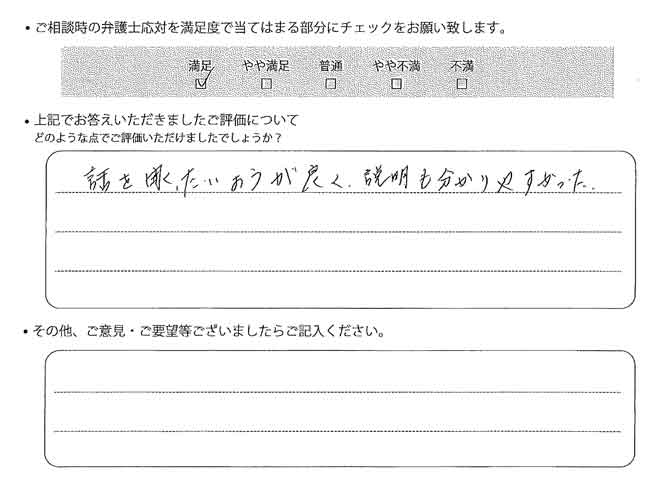 ・ご相談時の弁護士応対を満足度で当てはまる部分にチェックをお願い致します。
満足 やや満足 普通 やや不満 不満
☑ □ □ □ □
・上記でお答えいただきましたご評価について
どのような点でご評価いただけましたでしょうか？
話を聞く、たいおうが良く、説明も分かりやすかった。
・その他、ご意見・ご要望等ございましたらご記入ください。